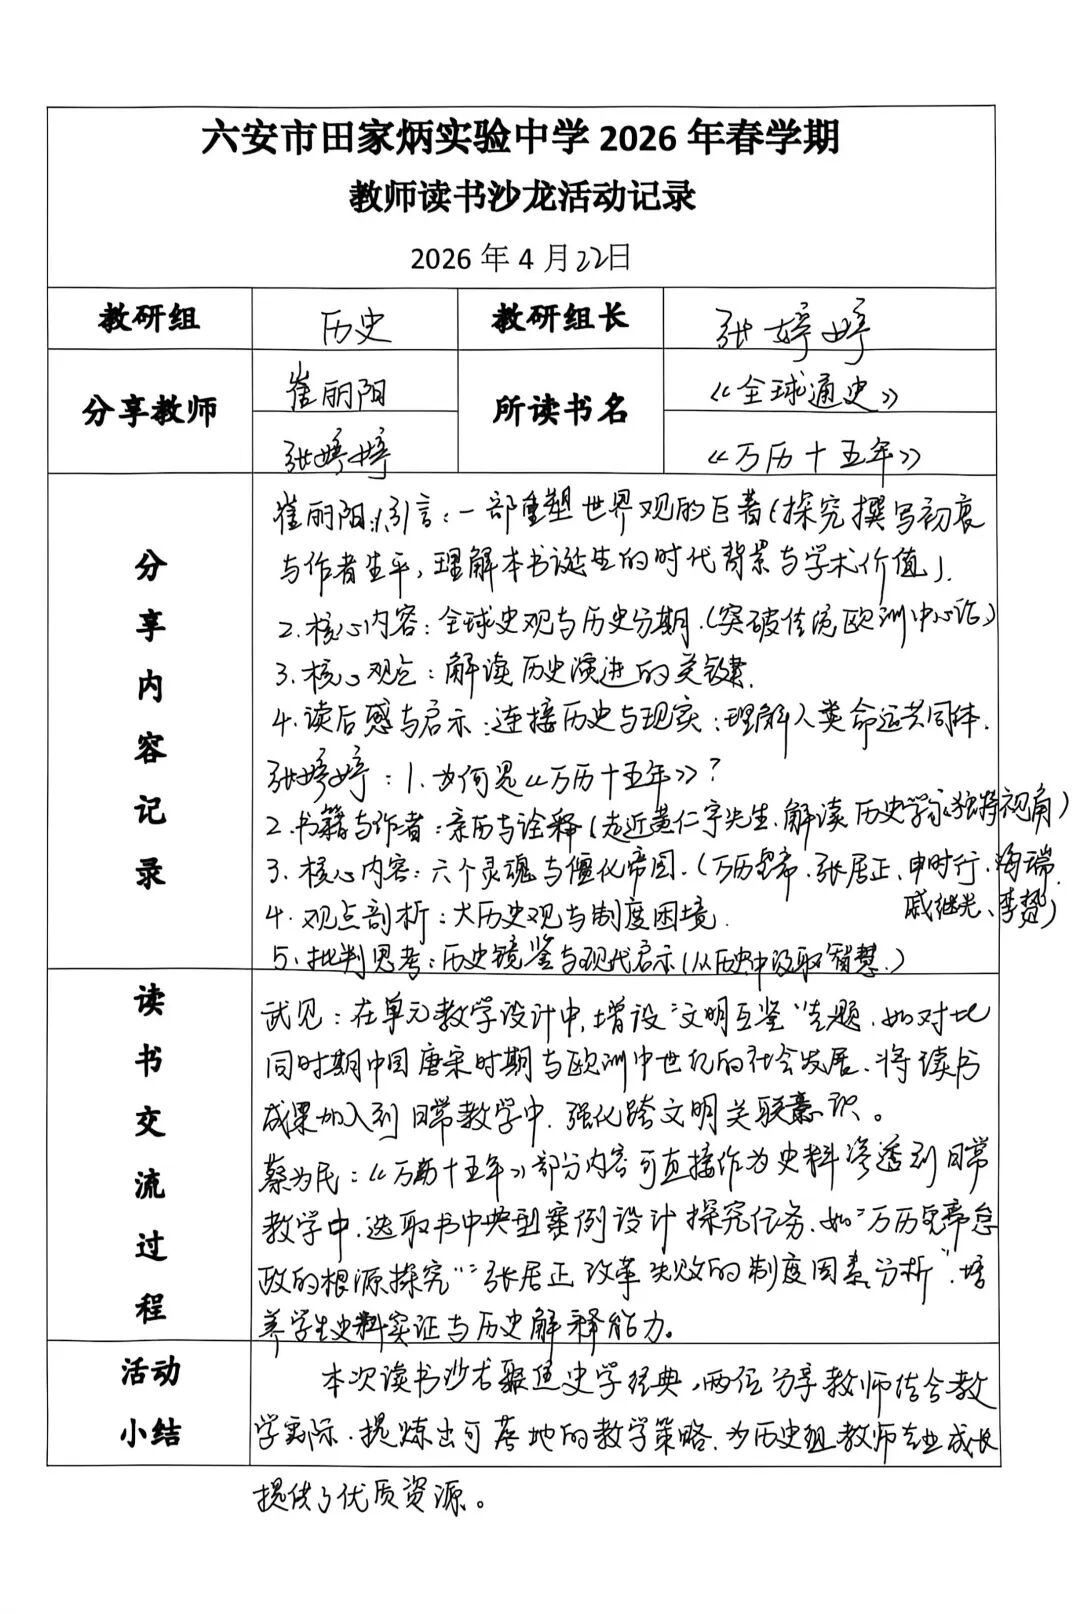 六安市田家炳实验中学 2026 年春学期
教师读书沙龙活动记录
2026 年 4 月 22日
教研组 历史 教研组长 张婷婷
分享教师 崔丽阳 所读书名 《全球通史》
张婷婷 《万历十五年》
分享内容记录
崔丽阳:1.引言:一部重塑世界观的巨著(探究撰写初衷
与作者生平,理解本书诞生的时代背景与学术价值).
2.核心内容:全球史观与历史分期.(突破传统欧洲中心论)
3.核心观点:解读历史演进的关键.
4.读后感与启示:连接历史与现实:理解人类命运共同体.
张婷婷:1.为何是《万历十五年》?
2.书籍与作者:亲历与诠释(走近黄仁宇先生.解读历史学家独特视角)
3.核心内容:六个灵魂与僵化帝国.(万历皇帝.张居正、申时行.海瑞.
戚继光、李贽)
4.观点剖析:大历史观与制度困境.
5.批判思考:历史镜鉴与现代启示(从历史中汲取智慧.)
读书交流过程
武见:在单元教学设计中,增设“文明互鉴”专题.如对比
同时期中国唐宋时期与欧洲中世纪的社会发展.将读书
成果加入到日常教学中.强化跨文明关联意识。
蔡为民:《万历十五年》部分内容可直接作为史料渗透到日常
教学中.选取书中典型案例设计探究任务.如“万历皇帝怠
政的根源探究”“张居正改革失败的制度因素分析”.培
养学生史料实证与历史解释能力。
活动小结
本次读书沙龙聚焦史学经典,两位分享教师结合教
学实际.提炼出可落地的教学策略.为历史组教师专业成长
提供了优质资源。